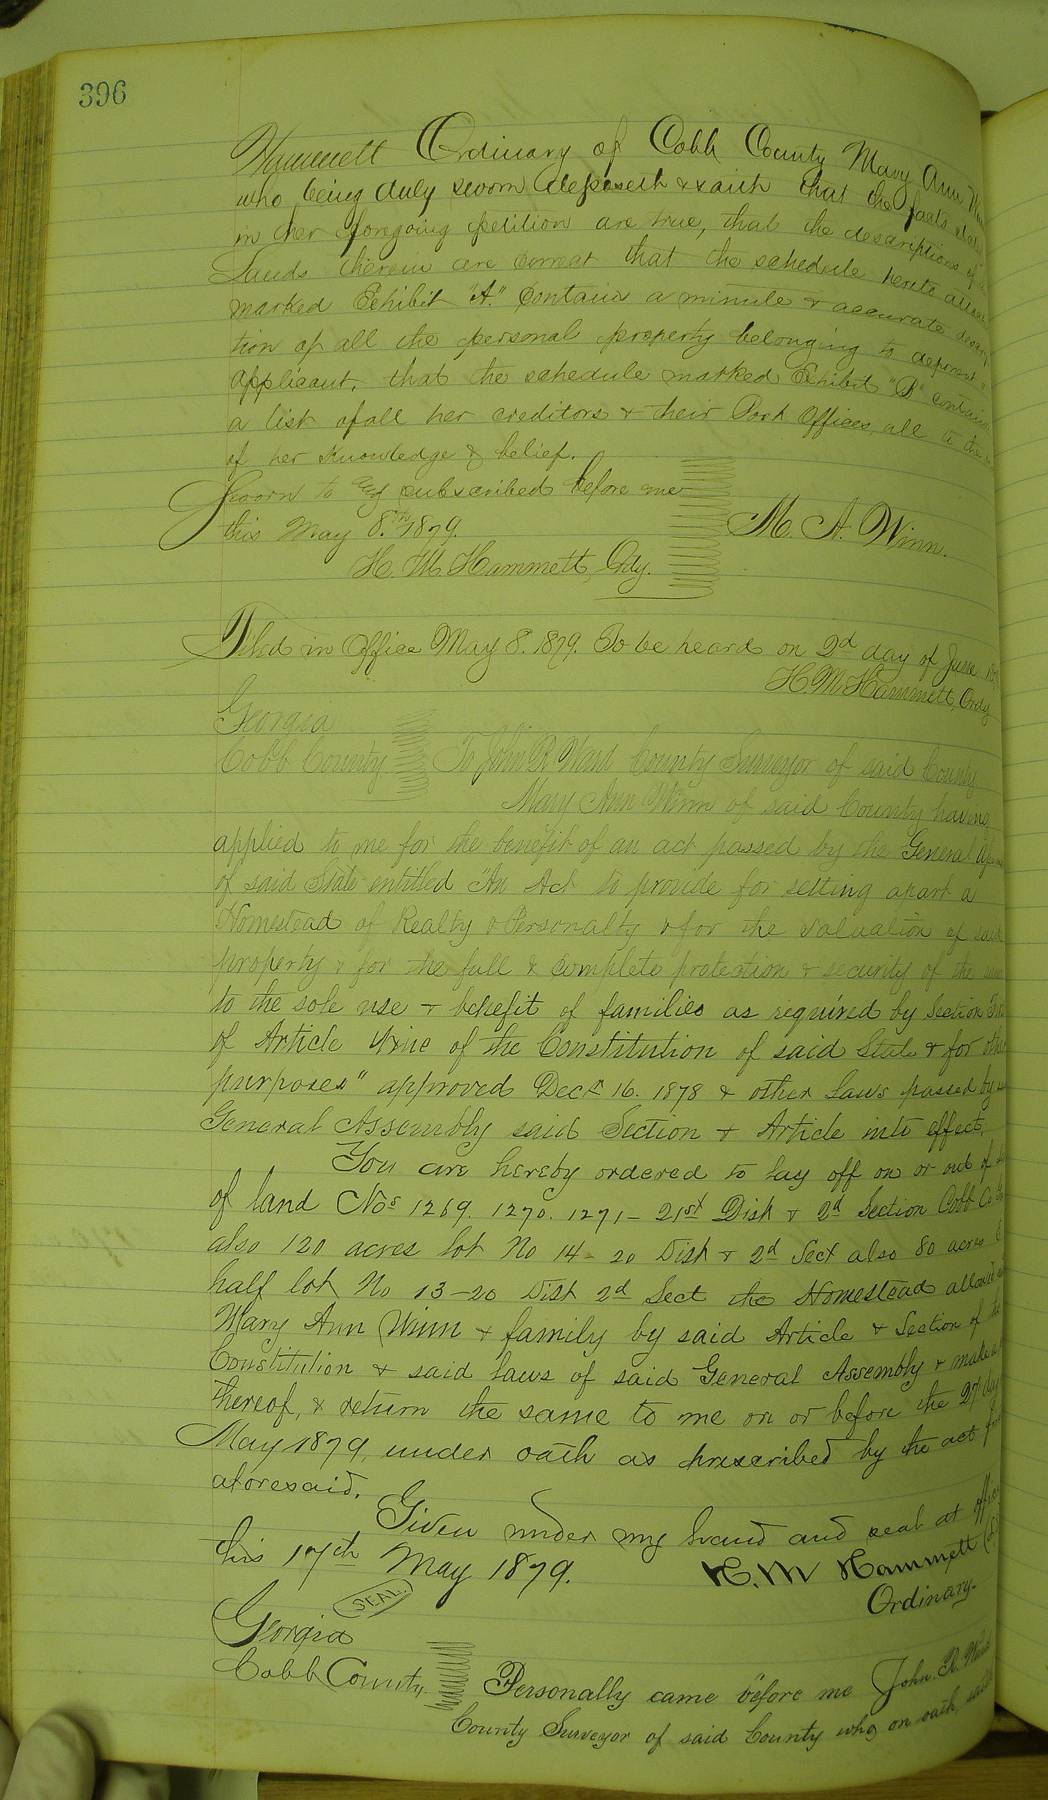 396
Hammett Ordinary of Cobb County Mary Ann
who being duly sworn deposeth & saith that the facts
in her forgoing petition are true, that the descriptions of
Lands therein are correct that the schedule hereto
marked Exhibit "A." contains a minute & accurate
tion of all the personal property belonging to deponent
applicant. that the schedule marked Exhibit "B" contains
a list of all her creditors & their Post Offices, all to the
of her Knowledge & belief.
Sworn to & subscribed before me
this May 8.th 1879.
M. A. Winn.
H. M. Hammett, Ordy.
Filed in Office May 8. 1879. To be heard on 2d day of June
H. M. Hammett, Ordy
Georgia
Cobb County To John R. Ward County Surveyor of said County
Mary Ann Winn of said County having
applied to me for the benefit of an act passed by the General
of said State entitled "An Act to provide for setting apart a
Homestead of Realty & Personalty & for the valuation of said
property & for the full & complete protection & security of the
to the sole use & benefit of families as required by Section
of Article Nine of the Constitution of said State & for
purposes" approved Decr 16. 1878 & other Laws passed by
General Assembly said Section & Article into effect.
You are hereby ordered to lay off on or out of
of land Nos 1269. 1270. 1271 - 21st Dist & 2d Section Cobb Co
also 120 acres lot No 14 - 20 Dist & 2d Sect also 80 acres
half lot No 13 - 20 Dist 2d Sect the Homestead allowed
Mary Ann Winn & family by said Article & Section of the
Constitution & said laws of said General Assembly & make
thereof, & return the same to me on or before the
May 1879, under oath as prescribed by the act
aforesaid.
Given under my hand and seal at office
this 17th May 1879.
H. M Hammett
Ordinary.
SEAL.
Georgia
Cobb County Personally came before me John. R. Ward
County Surveyor of said County who on oath,